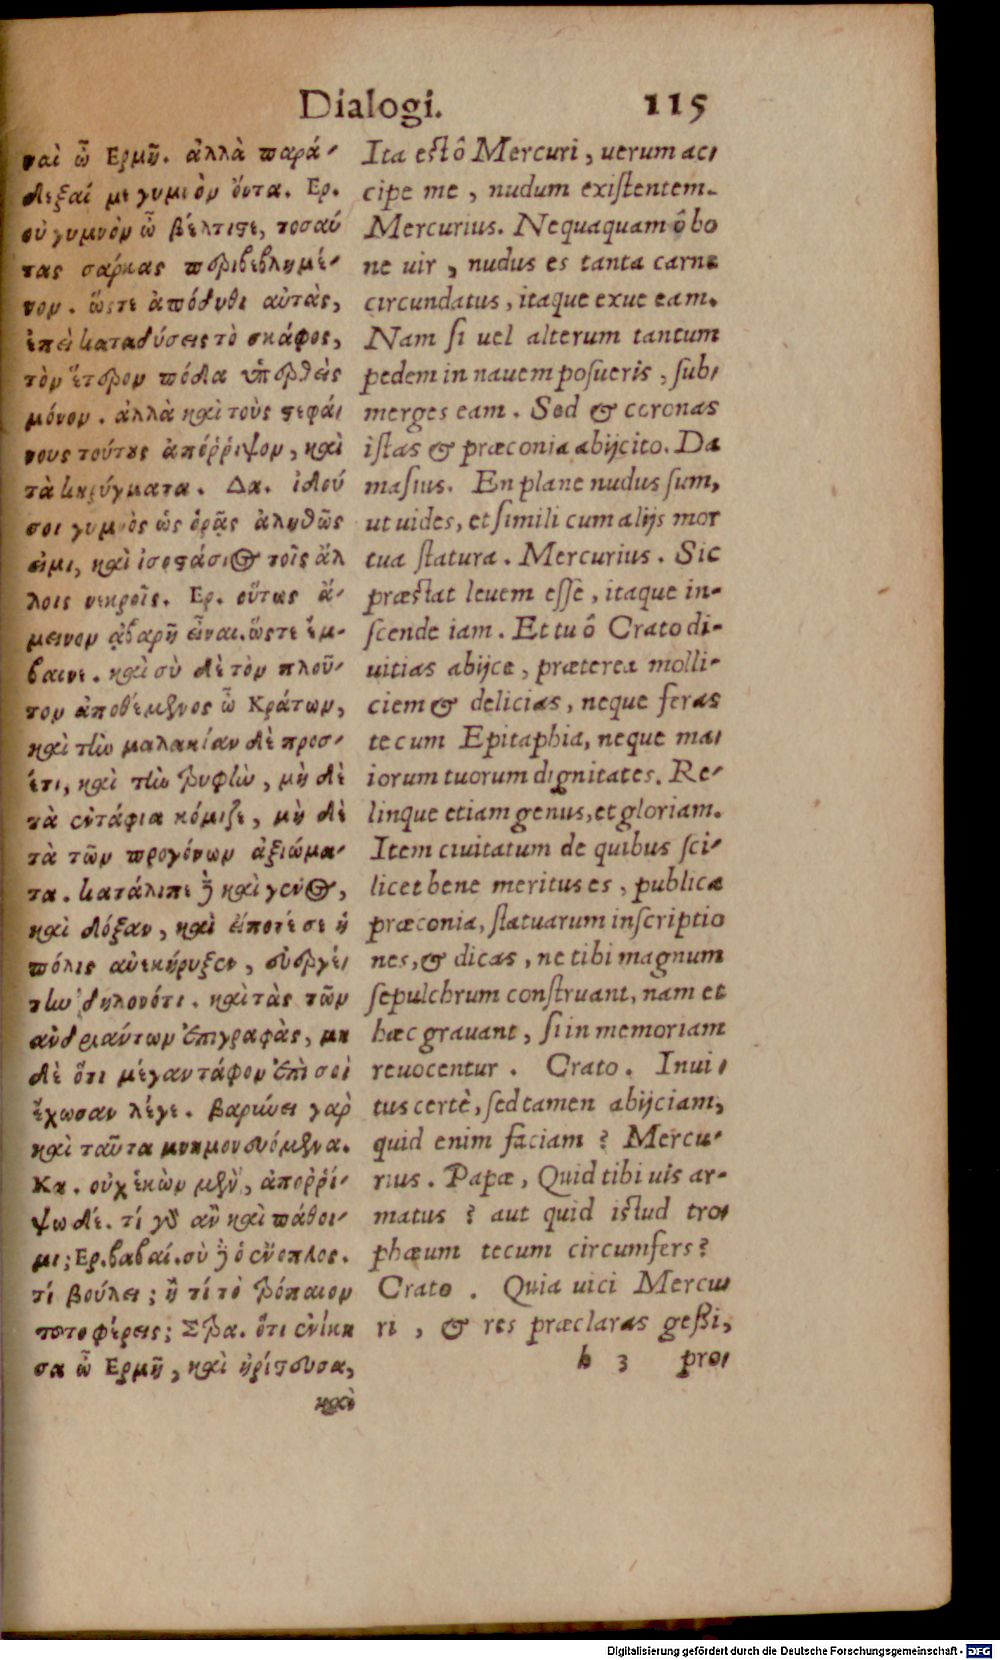 Dialogi. 115
ναὶ ὦ Ερμῆ. ἀλλὰ παρά-
δεξαί με γυμνὸν ὄντα. Ερ.
οὐ γυμνὸν ὦ βέλτιστε, τοσαύ
τας σάρκας περιβεβλημέ-
νον. ὥστε ἀπόδυθι αὐτὰς,
ἐπεὶ καταδύσεις τὸ σκάφος,
τὸν ἕτερον πόδα ὑπερθεὶς
μόνον. ἀλλὰ καὶ τοὺς στεφά-
νους τούτους ἀπόῤῥιψον, καὶ
τὰ κηρύγματα. Δα. ἰδού
σοι γυμνὸς ὡς ὁρᾷς ἀληθῶς
εἰμι, καὶ ἰσοστάσιος τοῖς ἄλ
λοις νεκροῖς. Ερ. οὕτως ἄ-
μεινον ἀβαρῆ εἶναι. ὥστε ἔμ-
βαινε. καὶ σὺ δὲ τὸν πλοῦ-
τον ἀποθέμενος ὦ Κράτων,
καὶ τὴν μαλακίαν δὲ προσ-
έτι, καὶ τὴν τρυφὴν, μὴ δὲ
τὰ ἐντάφια κόμιζε, μὴ δὲ
τὰ τῶν προγόνων ἀξιώμα-
τα. κατάλιπε δὲ καὶ γένος,
καὶ δόξαν, καὶ εἴποτέ σε ἡ
πόλις ἀνεκήρυξεν, εὐεργέ-
την δηλονότι. καὶ τὰς τῶν
ἀνδριάντων ἐπιγραφὰς, μη
δὲ ὅτι μέγαν τάφον ἐπὶ σοὶ
ἔχωσαν λέγε. βαρύνει γὰρ
καὶ ταῦτα μνημονευόμενα.
Κα. οὐχ ἑκὼν μὲν, ἀποῤῥί-
ψω δέ. τί γὰρ ἂν καὶ πάθοι-
μι; Ερ. βαβαί. σὺ δὲ ὁ ἔνοπλος.
τί βούλει; ἢ τί τὸ τρόπαιον
τοῦτο φέρεις; Στρα. ὅτι ἐνίκη
σα ὦ Ερμῆ, καὶ ἠρίστευσα,
καὶ
Ita est ô Mercuri, uerum ac-
cipe me, nudum existentem.
Mercurius. Nequaquam ô bo
ne uir, nudus es tanta carne
circundatus, itaque exue eam.
Nam si uel alterum tantum
pedem in nauem posueris, sub-
merges eam. Sed & coronas
istas & præconia abijcito. Da
masius. En plane nudus sum,
ut uides, et simili cum alijs mor
tua statura. Mercurius. Sic
præstat leuem esse, itaque in-
scende iam. Et tu ô Crato di-
uitias abijce, præterea molli-
ciem & delicias, neque feras
tecum Epitaphia, neque ma-
iorum tuorum dignitates. Re-
linque etiam genus, et gloriam.
Item ciuitatum de quibus sci-
licet bene meritus es, publica
præconia, statuarum inscriptio
nes, & dicas, ne tibi magnum
sepulchrum construant, nam et
hæc grauant, si in memoriam
reuocentur. Crato. Inui-
tus certè, sed tamen abijciam,
quid enim faciam? Mercu-
rius. Papæ, Quid tibi uis ar-
matus? aut quid istud tro-
phæum tecum circumfers?
Crato. Quia uici Mercu-
ri, & res præclaras geßi,
h 3 pro-
Digitalisierung gefördert durch die Deutsche Forschungsgemeinschaft - DFG